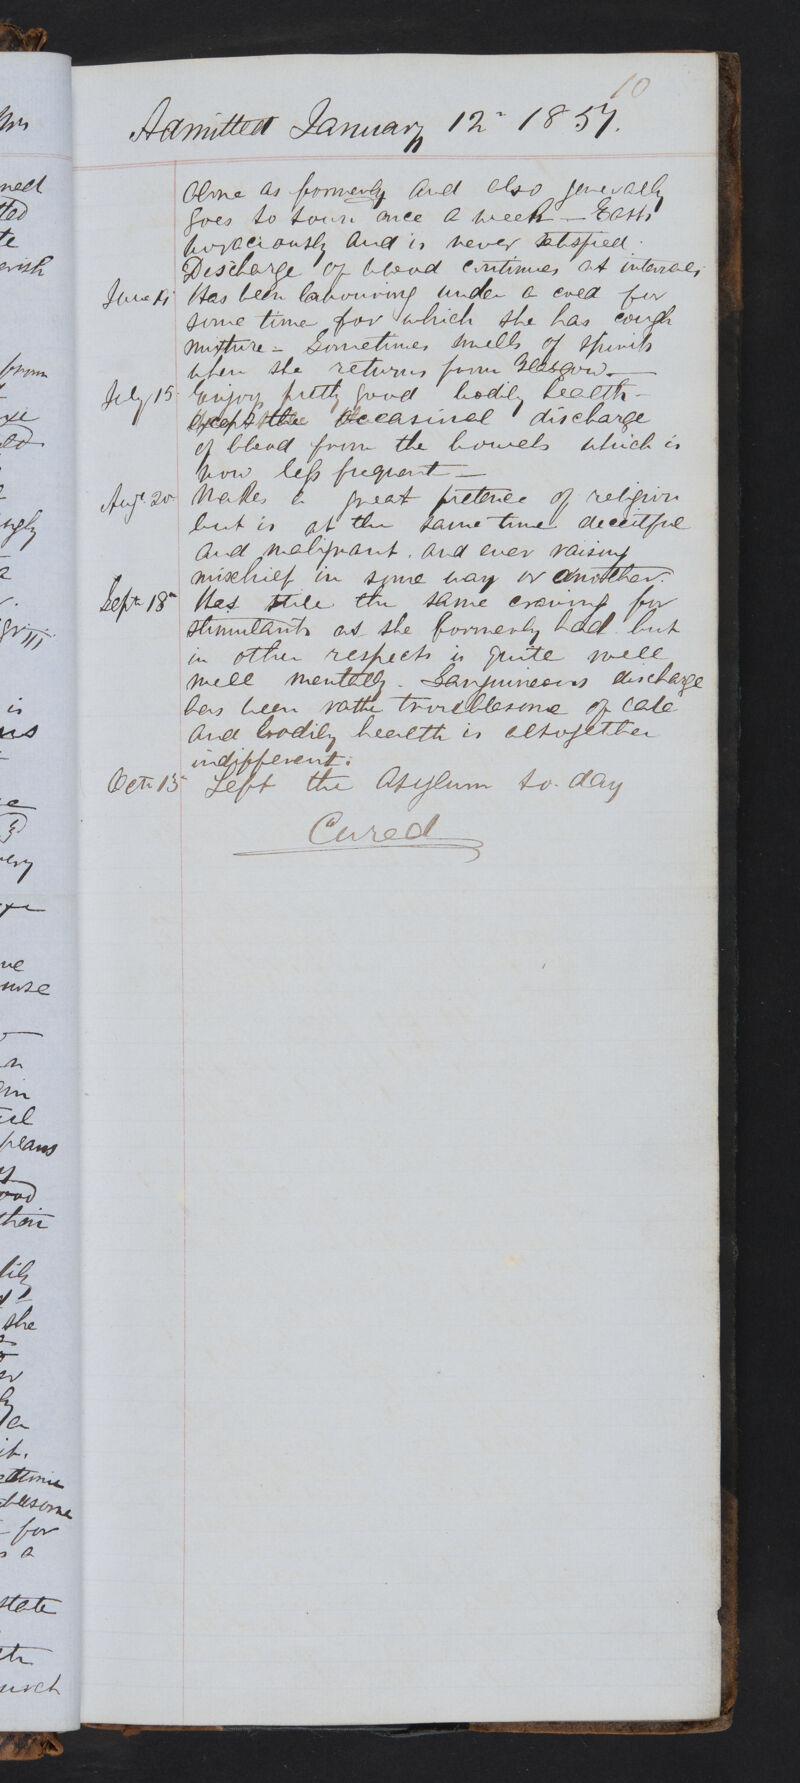 10
Admitted January 12th 1857.
Alone as formerly and also generally
goes to town once a week - Eats
voraciously and is never satisfied.
Discharge of blood continues at intervals
June Has been labouring under a cold for
some time for which she has cough
mixture - Sometimes smells of spirits
when she returns from Glasgow. -
July 15 Enjoys pretty good bodily health -
except the occasional discharge
of blood from the bowels which is
now less frequent -
Augt 20 Makes a great pretence of religion
but is at the same time deceitful
and malignant. and ever raising
mischief in some way or another.
Septr 18th Has still the same craving for
stimulants as she formerly had. but
in other respects is quite well
well mentally. Sanguineous discharge
has been rather troublesome of late
and bodily health is altogether
indifferent.
Octr 13 Left the Asylum to-day
Cured